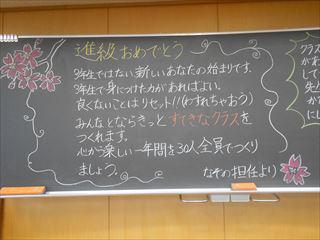 進級おめでとう
3年生ではない新しいあなたの始まりです。
3年生で身につけた力があればよい。
良くないことはリセット!!(わすれちゃおう)
みんなとならきっとすてきなクラスを
つくれます。
心から楽しい一年間を30人全員でつくり
ましょう。
なぞの担任より
クラス